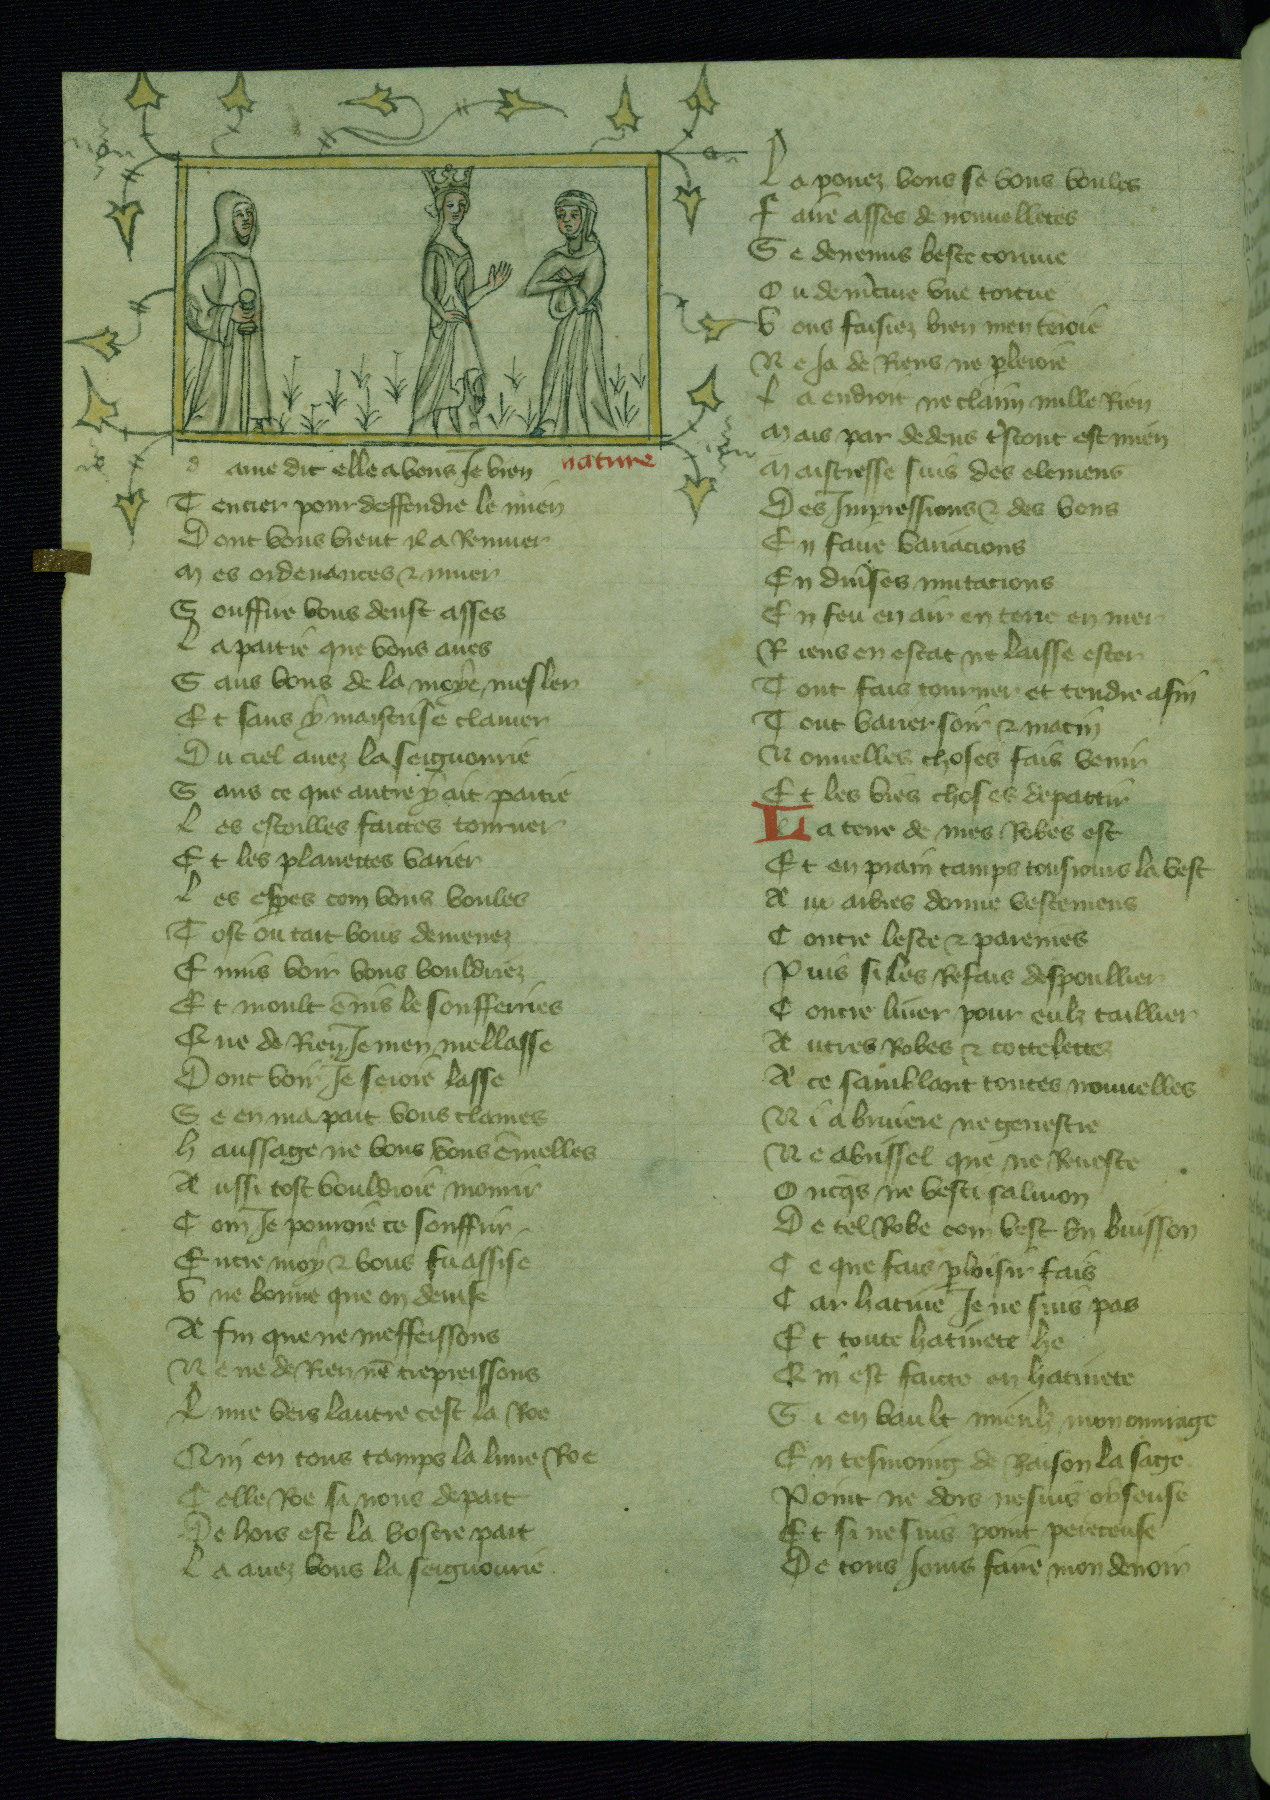 d ame dit elle a vous Je vien nature
T encier pour deffendre le mien
D ont vous vient il a Remuer
M es ordenances & muer
S ouffire vous deust asses
L a partie que vous aues
S ans vous de la moye mesler
E t sans y maistrise clamer
D u ciel auez la seignourie
S ans ce que autre y ait partie
L es estoilles faictes tourner
E t les planettes varier
L es esperes com vous voules
T ost ou tart vous demenez
E nuis voir vous vouldriez
E t moult enuis le soufferries
Q ue de Rien Je men mellasse
D ont voir Je seroie lasse
S e en ma part vous clames
h aussage ne vous vous emelles
A ussi tost vouldroie mourir
C om Je pourroie ce souffrir
E ntre moy & vous fu assise
V ne bonne que on deuise
A fin que ne meffeissons
N e ne de Rien nentrepreissons
L une vers lautre cest la Roe
Q ui en tous tamps la lune Roe
C elle Roe si nous depart
D ehors est la vostre part
L a auez vous la seignourie
L a pouez vous se vous voules
F aire asses de nouuelletes
S e deuenus beste cornue
O u de mercure vne tortue
V ous faisiez bien men teroie
N e Ja de Riens ne pleroie
L a endroit ne claim nulle Rien
M ais par dedens trestout est mien
M aistresse suis des elemens
D es Impressions & des vens
E n faire variacions
E n diuerses mutacions
E n feu en air en terre en mer
R iens en estat ne laisse ester
T out fais tourner et tendre a fin
T out varier soir & matin
N ouuelles choses fais venir
E t les vies choses departir
L a terre de mes Robes est
E t en prain tamps tousiours la vest
A ux arbres donne vestemens
C ontre leste & paremes
P uis si les Refais despoullier
C ontre liuer pour eulz taillier
A utres Robes & cottelettez
A ce samblant toutes nouuelles
N i a bruiere ne genestre
N e abrissel que ne Reueste
O ncques ne vesti salmon
D e tel Robe com vest vn buisson
C e que fais par loisir fais
C ar hatiue Je ne suis pas
E t toute hatiuete he
Q ui est faicte en hatiuete
S i en vault mieulz mon ouurage
E n tesmoing de Raison la sage
P oint ne dors ne suis oyseuse
E t si ne suis point pereceuse
D e tous Jours faire mon deuoir